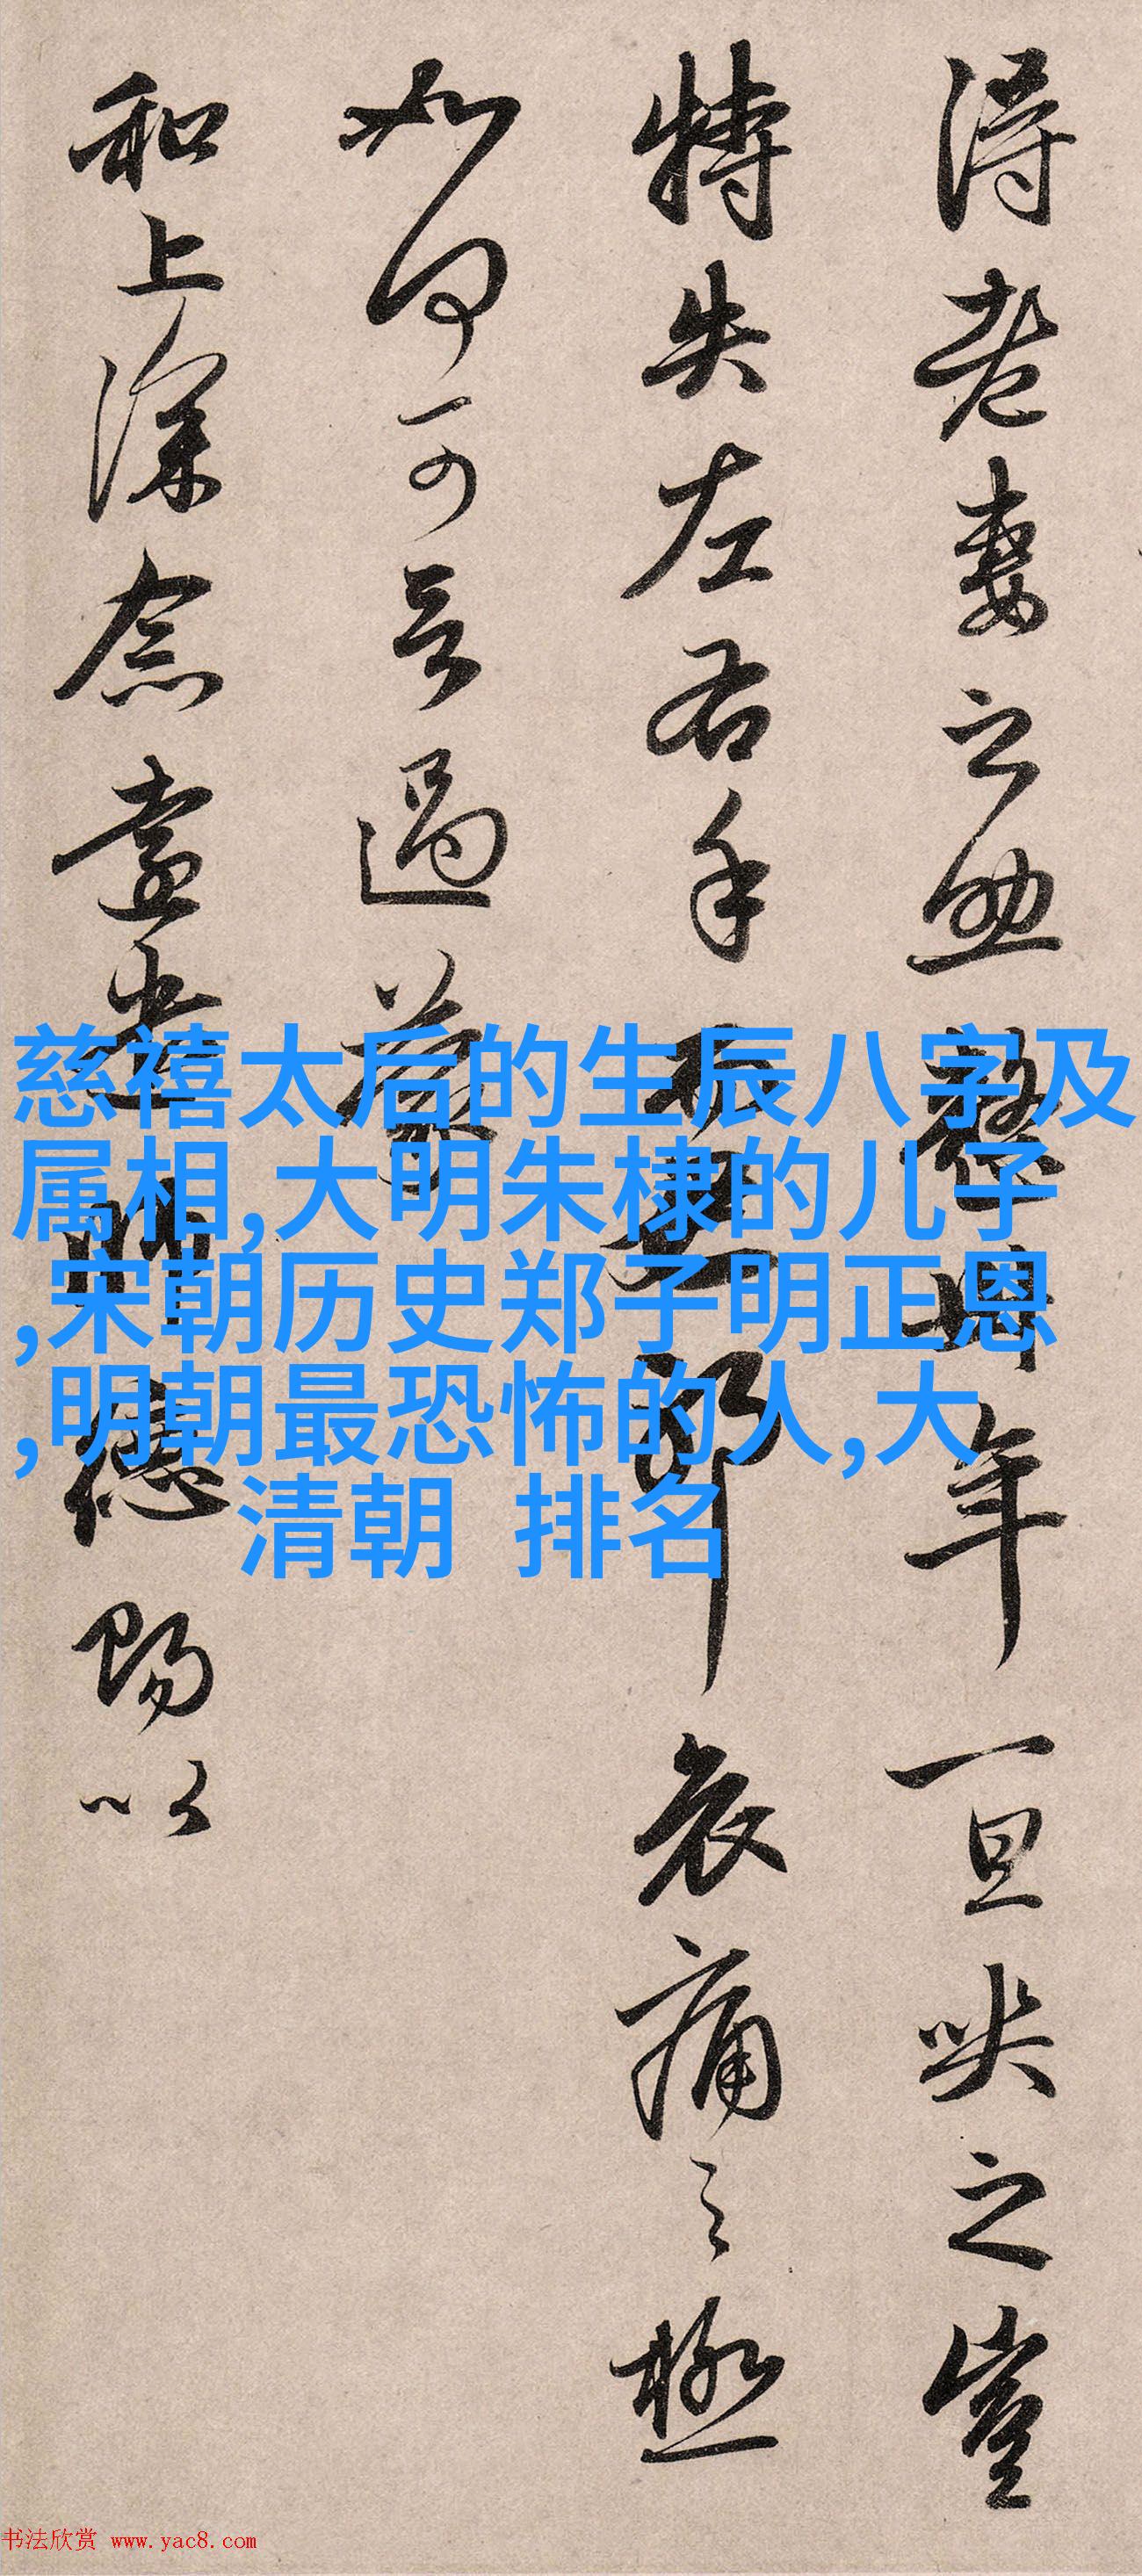 得老妻之助整卅年一旦哭之豈
特失左右手而已耶哀痛之極
如何可言過蒙
和上深念遠
賜以
慈禧太后的生辰八字及
属相,大明朱棣的儿子
,宋朝历史郑子明正恩
,明朝最恐怖的人,大
清朝 排名
书法欣赏 www.yac8.com